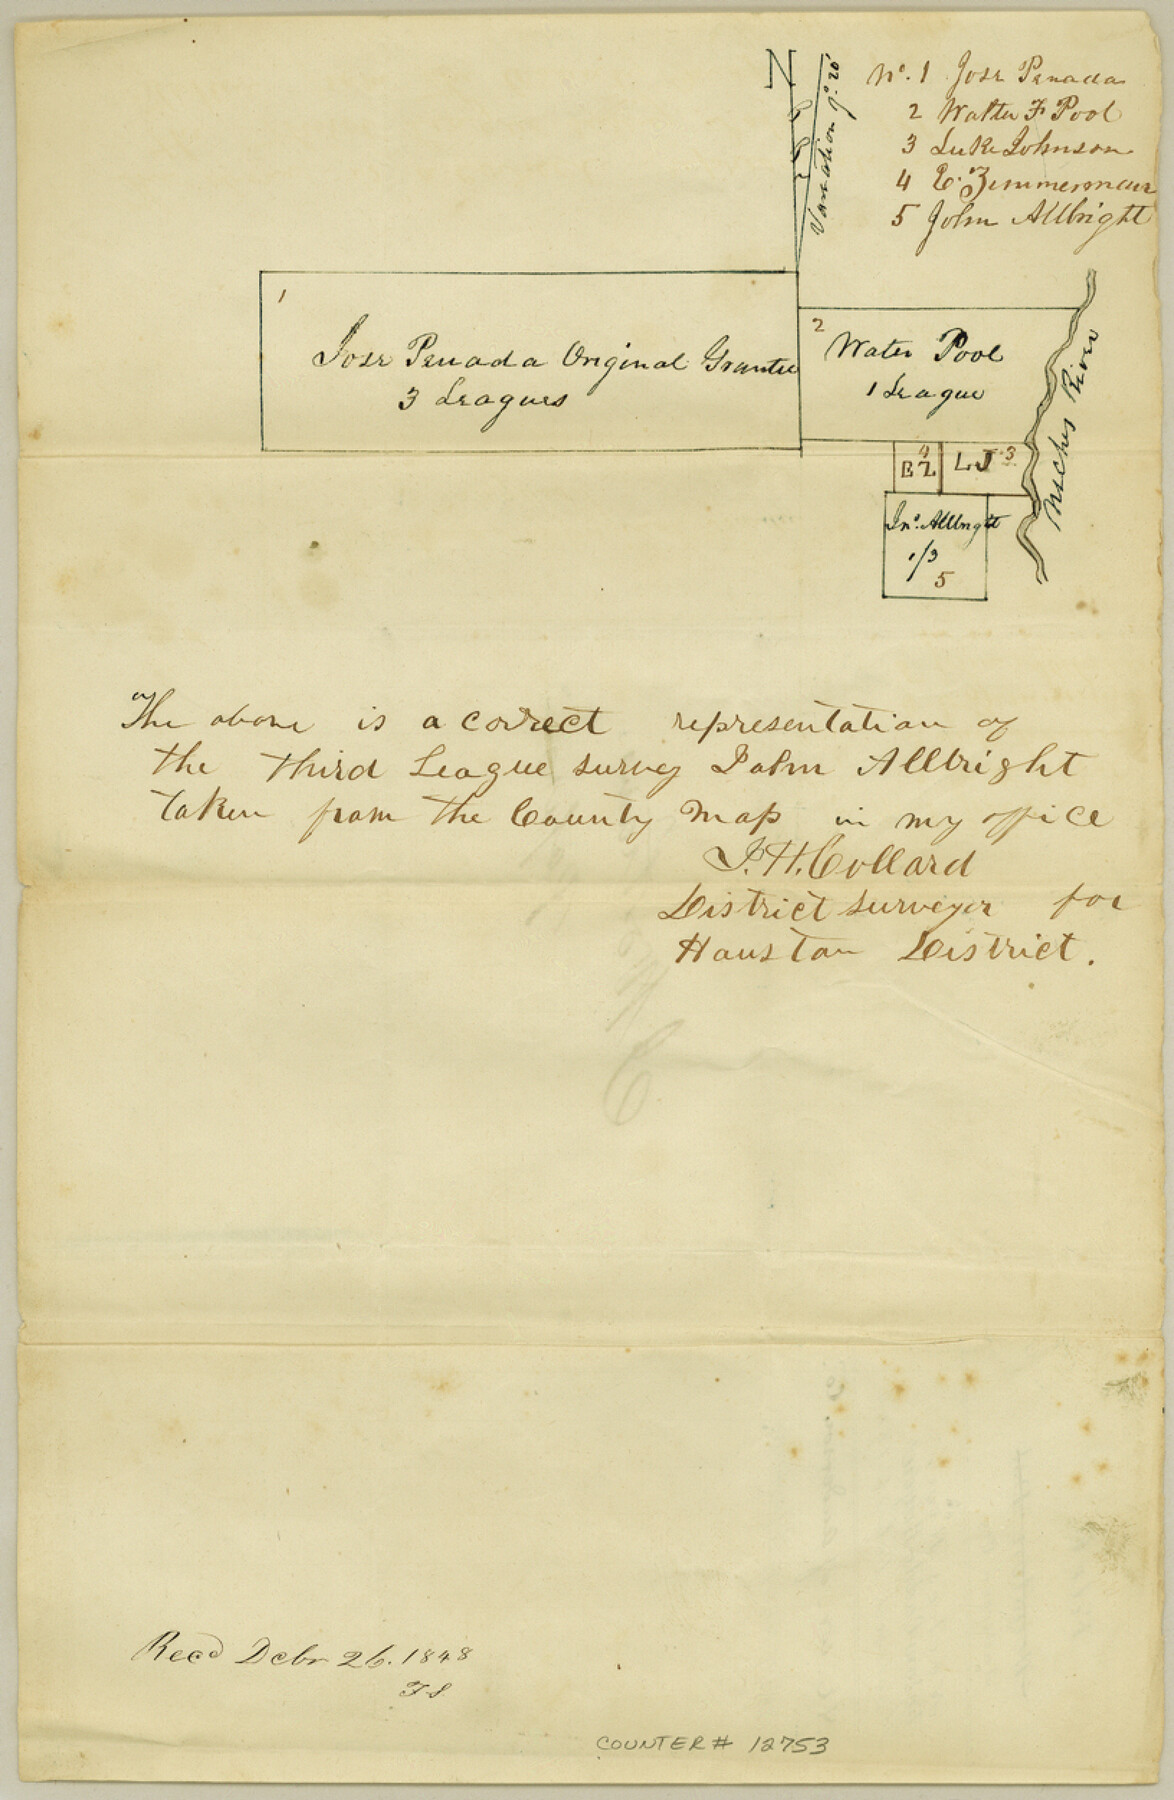 N
Variation 9°.20'
No. 1 Jose Penada
2 Walter F Pool
3 Luke Johnson
4 E. Zimmerman
5 John Allbright
1
Jose Penada Original Grantee
3 Leagues
2
Water Pool
1 League
Neches River
4
EZ
LJ 3
Jno. Allbright
1/3
5
The above is a correct representation of
the third League survey John Allbright
taken from the County Map in my office
J. H. Collard
District surveyor for
Houston District.
Recd Debr 26. 1848
COUNTER# 12753